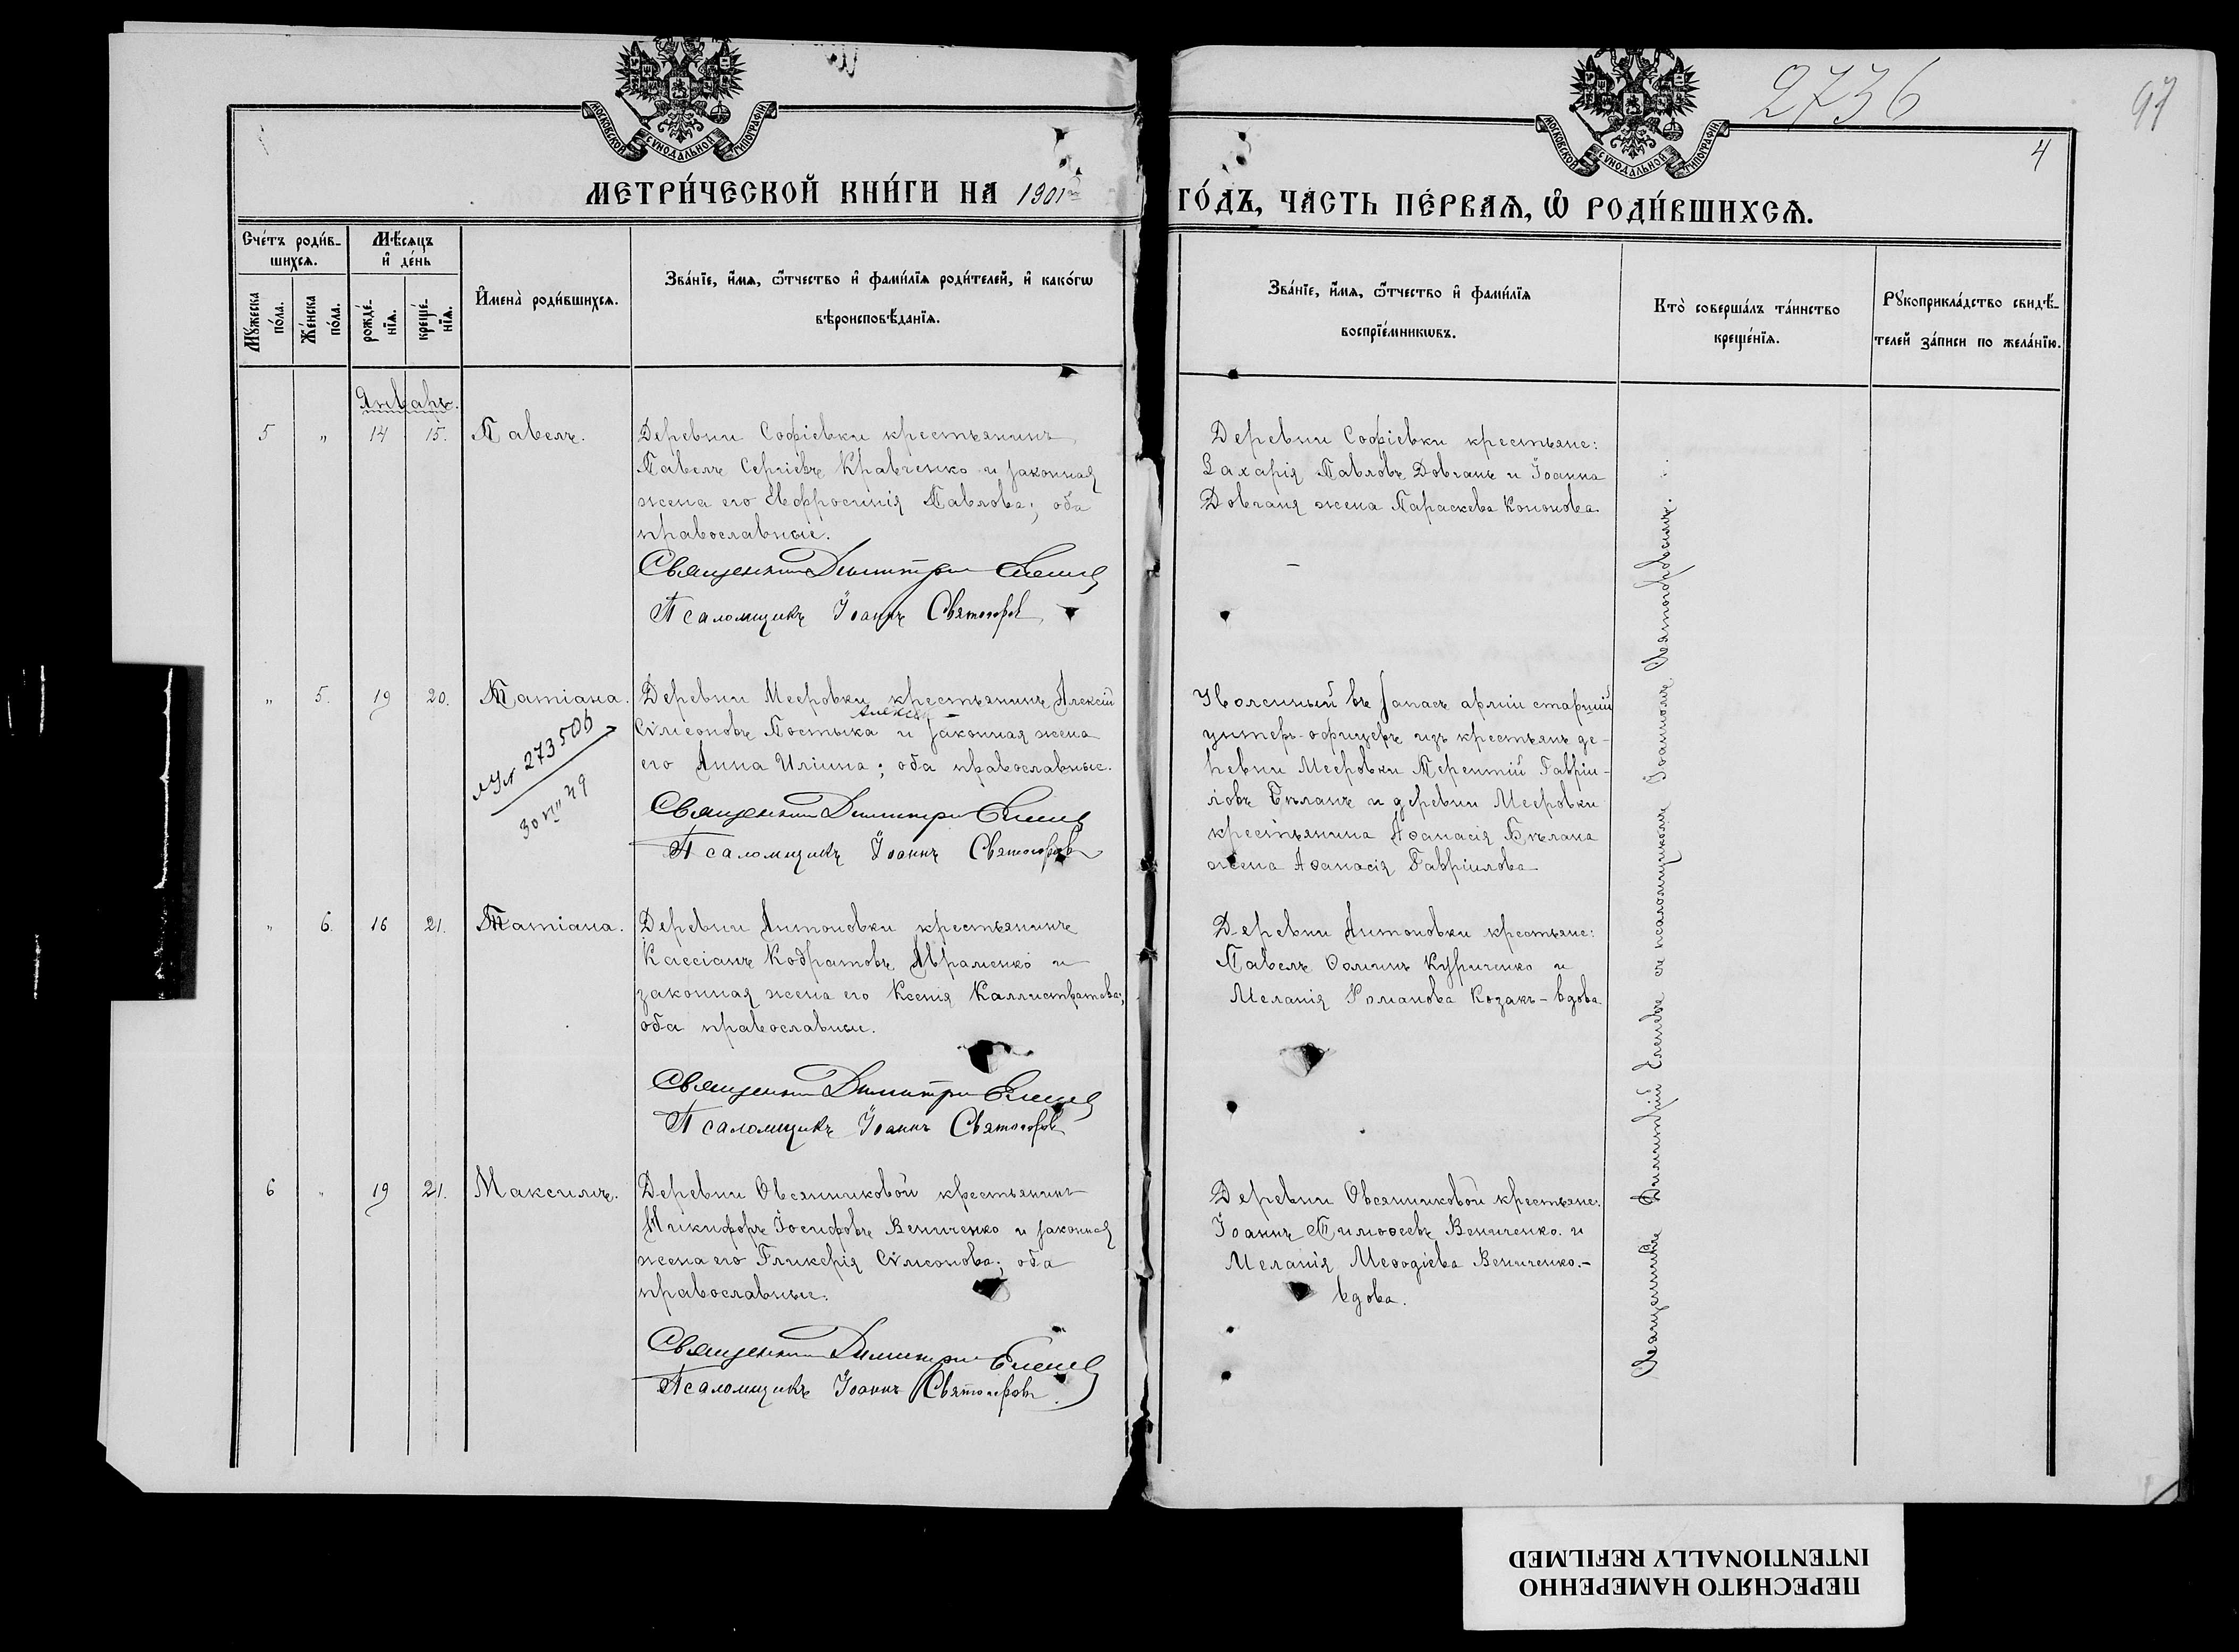 МОСКОВСКОЙ СѴНОДАЛЬНОЙ ТИПОГРАФІИ
МОСКОВСКОЙ СѴНОДАЛЬНОЙ ТИПОГРАФІИ
2736
97
4
МЕТРИ́ЧЕСКОЙ КНИ́ГИ НА 1901й
ГО́ДЪ, ЧА́СТЬ ПЕ́РВАѦ, Ѡ҆ РОДИ́ВШИХСѦ.
Сче́тъ роди́в-
шихсѧ.
Мꙋ́жеска
по́ла.
Же́нска
по́ла.
Мѣ́сѧцъ
и҆ де́нь
рожде́-
нїѧ.
креще́-
нїѧ.
И҆мена̀ роди́вшихсѧ.
Зва́нїе, и҆́мѧ, ѻ҆́тчество и҆ фами́лїѧ роди́телей, и҆ како́гѡ
вѣроисповѣ́данїѧ.
Зва́нїе, и҆́мѧ, ѻ҆́тчество и҆ фами́лїѧ
воспрїе́мникѡвъ.
Кто̀ соверша́лъ та́инство
креще́нїѧ.
Рꙋкоприкла́дство свидѣ́-
телей за́писи по жела́нїю.
Январь.
5 " 14 15. Павелъ.
Деревни Софіевки крестьянинъ
Павелъ Сергіевъ Кравченко и законная
жена его Евфросинія Павлова; оба
православные.
Священник Димитрій Еленев
Псаломщикъ Іоаннъ Святогоров
Деревни Софіевки крестьяне:
Захарія Павловъ Довгань и Іоанна
Довганя жена Параскева Кононова.
" 5. 19 20. Татіана.
273506
Деревни Мееровки крестьянинъ Алексій
Алексѣй
Сѵмеоновъ Постыка и законная жена
его Анна Иліина; оба православные.
Священник Димитрій Еленев
Псаломщикъ Іоаннъ Святогоров
Уволенный въ запасъ арміи старшій
унтеръ-офицеръ изъ крестьянъ де-
ревни Мееровки Терентій Гавріи-
ловъ Бѣланъ и деревни Мееровки
крестьянина Аѳанасія Бѣлана
жена Аѳанасія Гавріилова
" 6. 16 21. Татіана.
Деревни Антоновки крестьянинъ
Кассіанъ Кодратовъ Авраменко и
законная жена его Ксенія Каллистратова;
оба православные.
Священник Димитрій Еленев
Псаломщикъ Іоаннъ Святогоров
Деревни Антоновки крестьяне:
Павелъ Ѳоминъ Куриченко и
Меланія Романова Козакъ - вдова.
6 " 19 21. Максимъ.
Деревни Овсянниковой крестьянинъ
Никифоръ Іосифовъ Величенко и законная
жена его Гликерія Сѵмеонова; оба
православные.
Священник Димитрій Еленев
Псаломщикъ Іоаннъ Святогоровъ
Деревни Овсянниковой крестьяне:
Іоаннъ Тимоѳеевъ Величенко и
Меланія Меѳодіева Величенко.-
вдова.
Священникъ Димитрій Еленевъ съ псаломщикомъ Іоанномъ Святогоровымъ.
ПЕРЕСНЯТО НАМЕРЕННО
INTENTIONALLY REFILMED